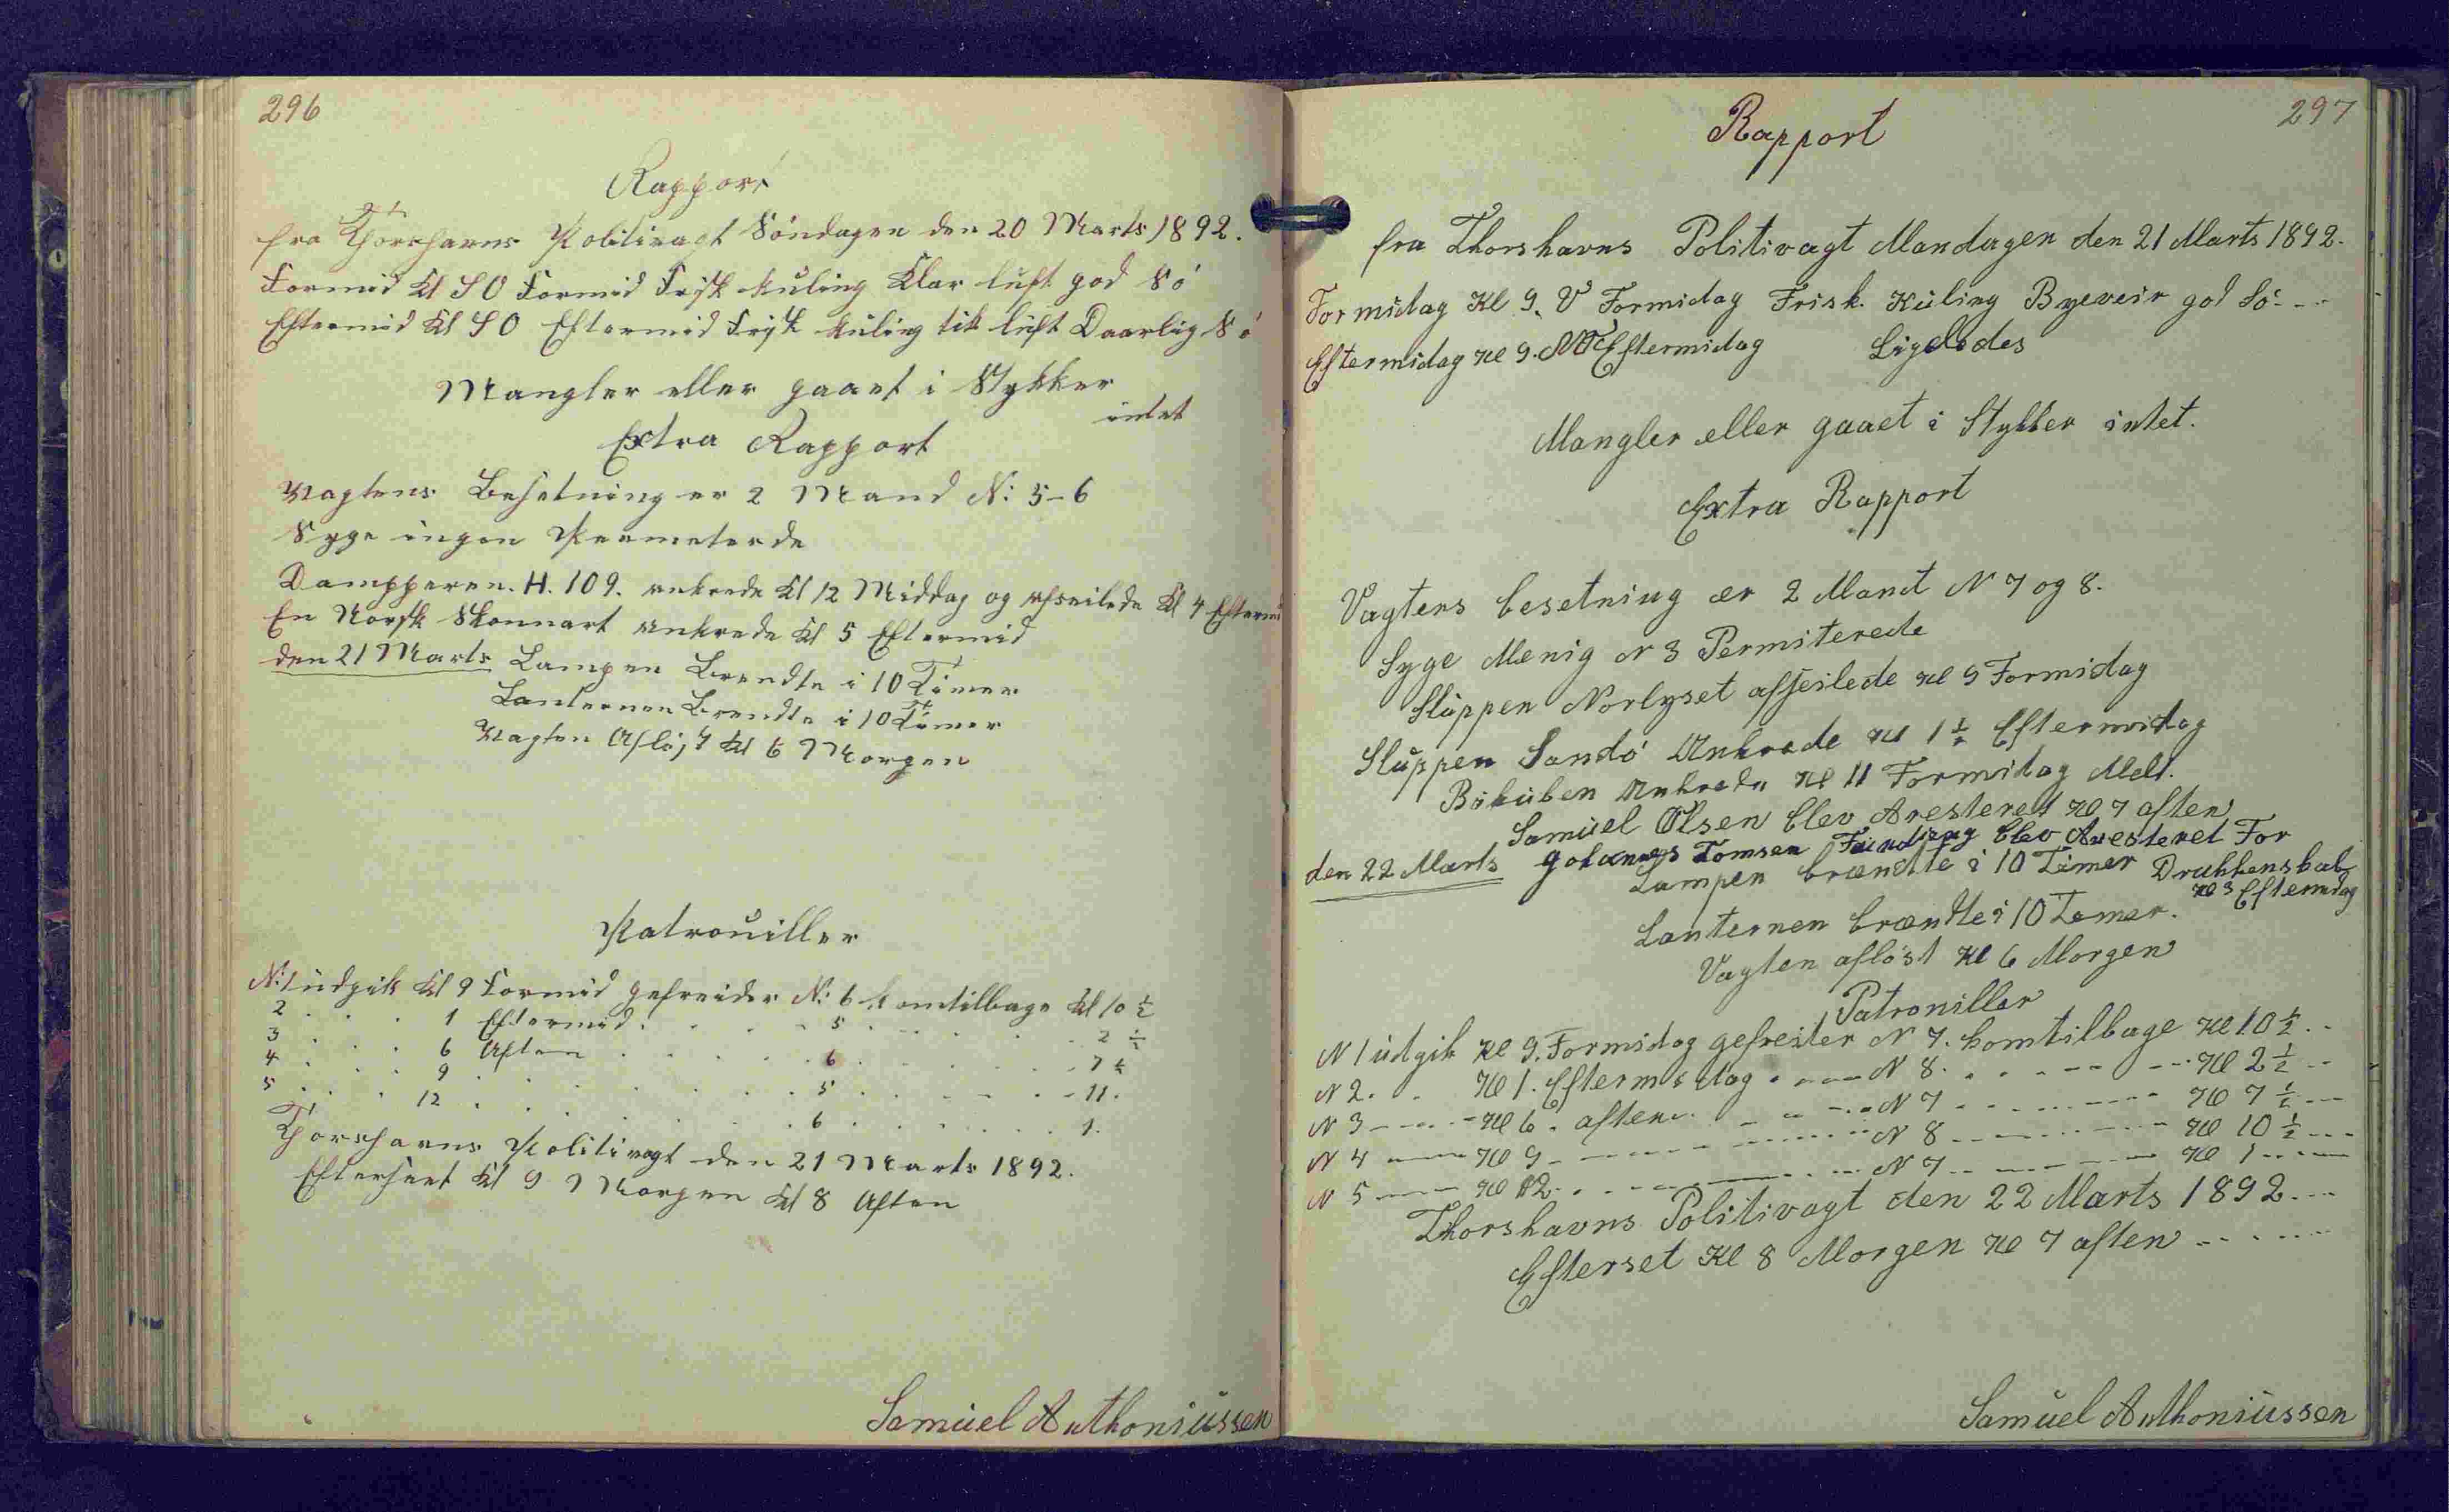 296
Rapport
fra Thorshavns Politivagt Söndagen den 20 Marts 1892.
Formid Kl SO Formid Frisk Kuling Klar luft god Sö
Eftermid Kl SO Eftermid Frisk Kuling tik luft Daarlig Sö
Mangler eller gaaet i Stykker
intet
Extra Rapport
Vagtens Besetning er 2 Mand N: 5-6
Syge ingen Permeterde
Dampperen. H. 109. ankrede Kl 12 Middag og afseilede Kl 4 Eftermi
En Norsk Skonnart ankrede Kl 5 Eftermid
den 21 Marts Lampen Brendte i 10 Timer
Lanternen Brendte i 10 Timer
Vagten Aflöst Kl 6 Morgen
Patrouiller
N: 1 udgik Kl 9 Formid gefreider N: 6 komtilbage Kl 10 1/2
2 . . . 1 Eftermid . . . . 5 . . . . 2 1/2
3 . . . 6 Aften . . . . 6 . . . . 7 1/2
4 . . . 9 . . . . 5 . . . . 11.
5 . . . 12 . . . . 6 . . . . 1.
Thorshavns Politivagt den 21 Marts 1892.
Efterseet Kl 9 Morgen Kl 8 Aften
Samuel Anthoniussen
297
Rapport
fra Thorshavns Politivagt Mandagen den 21 Marts 1892.
Formidag Kl 9. V Formidag Frisk. Kuling Byeveir god Sö - -
Eftermidag Kl 9. Eftermidag Ligeledes
Mangler eller gaaet i Stykker intet.
Extra Rapport
Vagtens besetning er 2 Mand N 7 og 8.
Syge Menig N 3 Permiterede
Sluppen Norlyset afseilede Kl 9 Formidag
Sluppen Sandö Ankrede Kl 1 1/2 Eftermidag
Bikuben Ankrede Kl 11 Formidag
Samuel Olsen blev Aresteret Kl 7 aften
Johannes Tomsen blev Aresteret For
den 22 Marts Lampen brændte i 10 Timer Drukkenskab
Kl 3 Eftermidag
Lanternen brændte i 10 Temer.
Vagten aflöst Kl 6 Morgen
Patroniller
N 1 udgik Kl 9. Formidag gefreiter N 7. komtilbage Kl 10 1/2 . .
N 2. . Kl 1. Eftermidag . - - - N 8. . . - - - - Kl 2 1/2 - -
N 3 - - - - Kl 6. aften. - - - - N 7 - - - - Kl 7 1/2 - -
N 4 - - - Kl 9 - - - - N 8 - - - - Kl 10 1/2 - - -
N 5 - - - Kl 12. . . - - - - N 7 - - - - Kl 1 - - -
Thorshavns Politivagt den 22 Marts 1892. - - -
Efterset Kl 8 Morgen Kl 7 aften - - - - -
Samuel Anthoniussen